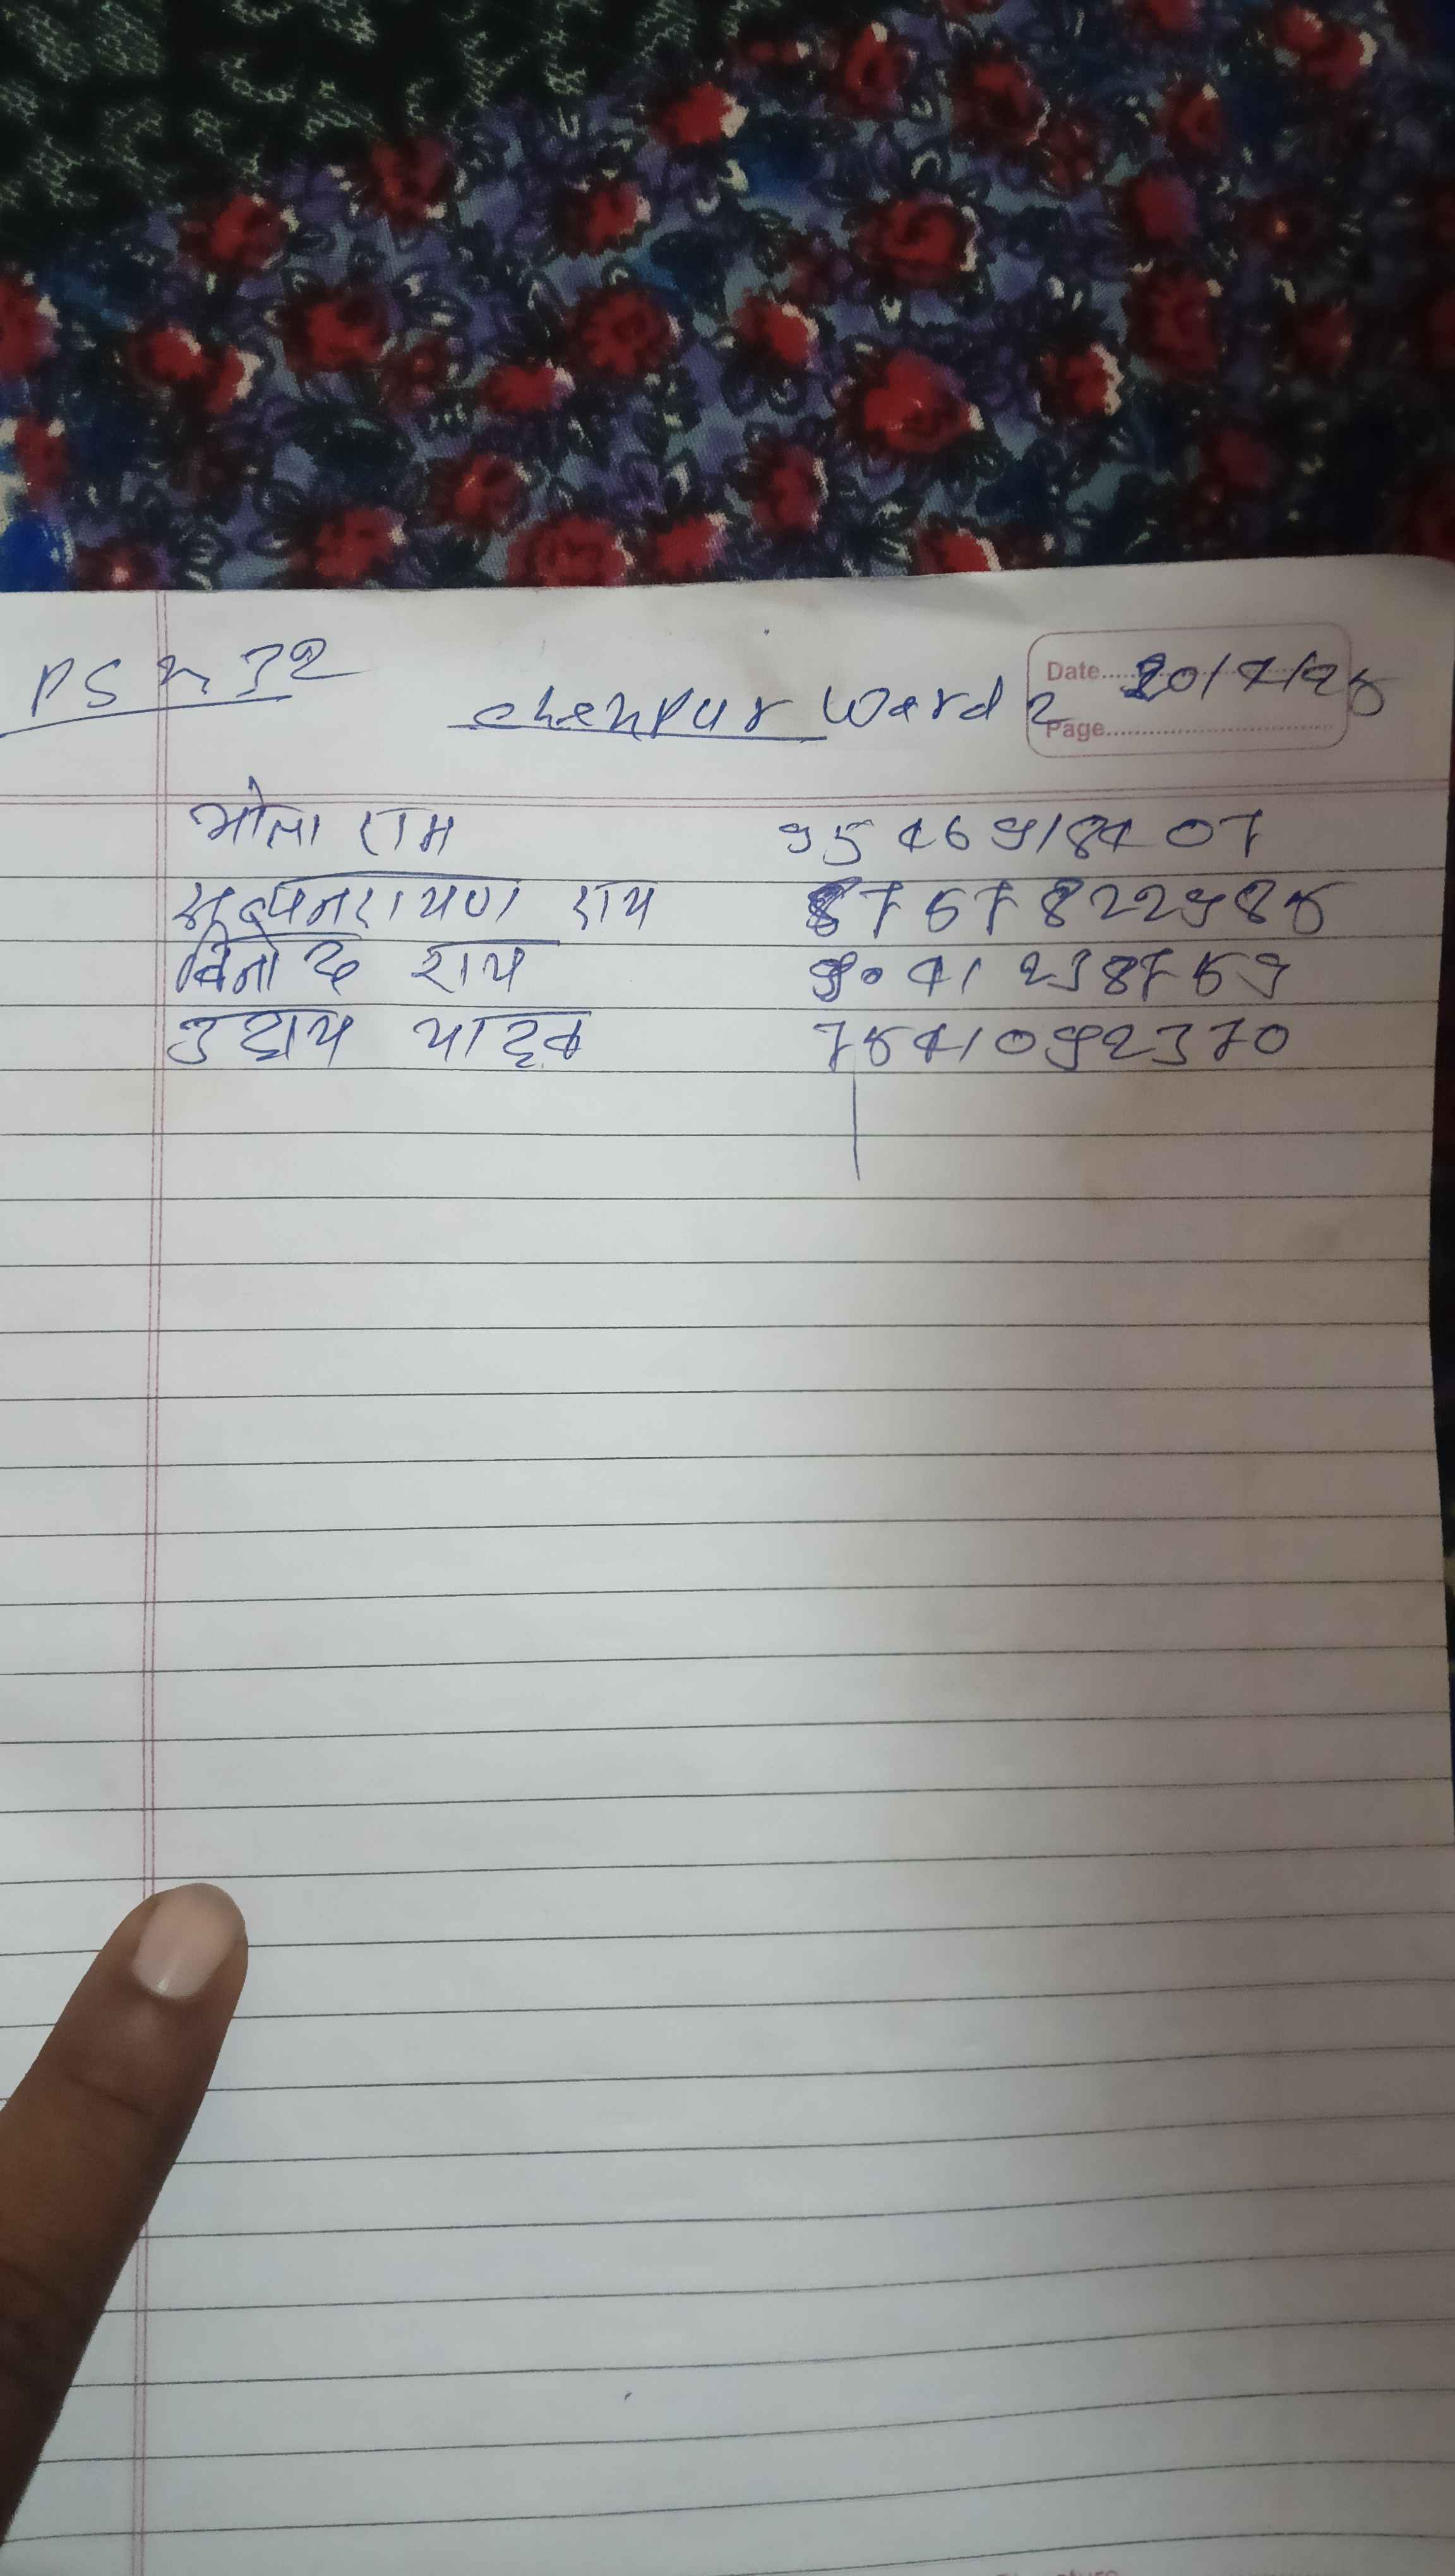 PS n 32
chenpur Ward 2
Date 20/7/25
Page
भोला राम 9546918407
राय 8767822985
विनोद राय 9041238769
उदाय यादव 7541092370